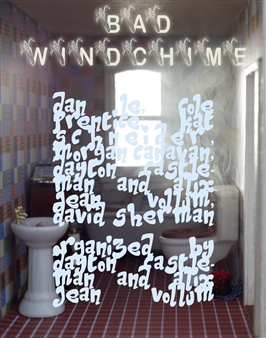 BAD
WINDCHIME
dan le, cole
prentice, kat
schneider,
morgan canavan,
dayton castle-
man and alix
jean vollum,
david sherman
organized by
dayton castle-
man and alix
jean vollum